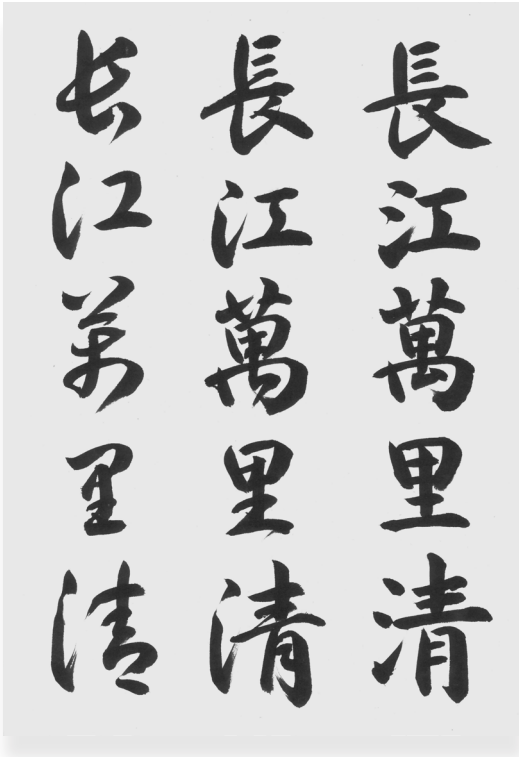 長江萬里清
長江萬里清
長江萬里清